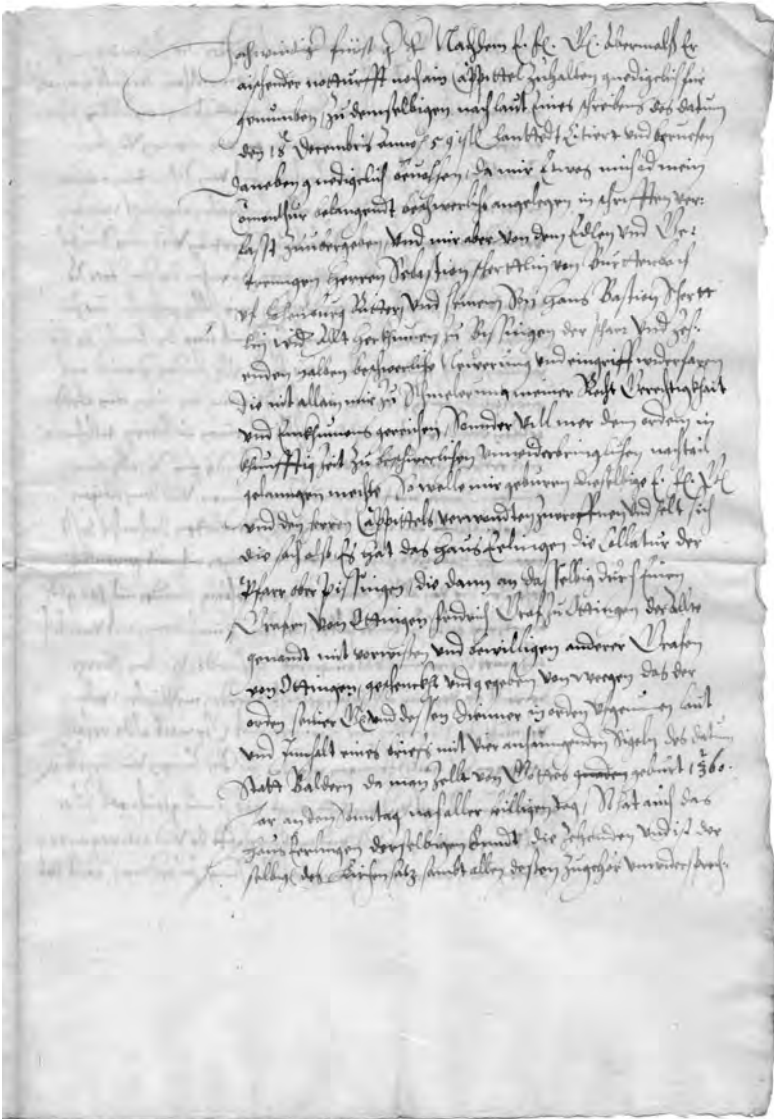 Hochwirdig fürst g h Nachdem E. f. G. abermals Er
aischender notturfft nach ain Cappittel Zuhalten gnedigclich für
genumben, zu demselbigen nach laut Eines schreibens des datum
den 18 Decembris Anno 59 Citiert und beruefen
Daneben gnedigclich bevolhen, da mir Etwas mich ad mein
Comenthur belangendt beschwerlichs angelegen in schrifften ver-
fasst zuubergeben, Und mir aber von dem Edlen und Ge-
strenngen Herren Sebastian Schertlin von Burttenbach
Ritter, Und seinem Son Hans Bastian Schertt
lin wider Allt herkhumen zu Bissingen der pfarr Und zeh-
enden halben beschwerliche Newerung und eingriff widerfaren
die nit allain mir zu Schmelerung meiner Recht Gerechtigkhait
und Einkhumens geraichen, Sonder Vill mer dem orden in
khunfftig Zeit zu beschwerlichen unwiderbringlichen nachtail
gelanngen mechte, So welle mir geburen dieselbige E. f. G.
und den herren Cappittels verwandten zueroffnen Und helt sich
die sach also Es hat das Haus Erlingen die Collatur der
Pfarr ober Pissingen, die dann an dasselbig durch Einen
Grafen Von Ottingen, fridrich Graf zu Ottingen der Allte
genandt mit vorwissen und bewilligen anderer Grafen
von Ottingen, geschenckht und gegeben von weegen das der
orden seiner diennner in orden ufgenumen laut
und Innhalt eines briefs mit vier anhanngenden Sigeln des datum
Statt Baldern da man Zellt von Gottes gnaden geburt 1360.
Jar an dem Sonntag nach aller hailligen tag, So hat auch das
Haus Erlingen derselbigen Enndt die Zehenden Und ist der
selbig des Kirchensatz sambt allen dessen Zugehör unwidersprech-